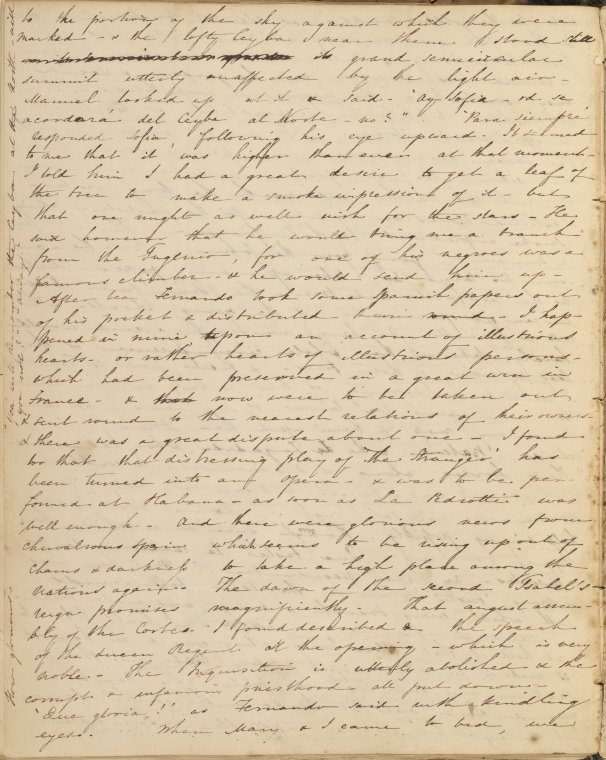 to the portion of the sky against which they were
marked - & the lofty Ceyba near them stood still
its grand semicircular
summit utterly unaffected by the light air -
Manuel looked up at it & said - "Ay Sofia - se
acordará del Ceyba al Norte - no?" "Para siempre"
responded Sofia, following his eye upward - It seemed
to me that it was higher than ever at that moment -
I told him I had a great desire to get a leaf of
the tree to make a smoke impression of it - but
that one might as well wish for the stars - He
said however that he would bring me a branch
from the Ingenio, for one of his negroes was a
famous climber - & he would send him up -
After tea Fernando took some Spanish papers out
of his pocket & distributed them round - I hap-
pened in mine upon an account of illustrious
hearts - or rather hearts of illustrious persons -
which had been preserved in a great urn in
France - & now were to be taken out
& sent round to the nearest relations of their owners -
& there was a great dispute about one - I found
too that that distressing play of "The Stranger" has
been turned into an Opera - & was to be per-
formed at Habana - as soon as La Pedrotti was
well enough - And there were glorious news from
chivalrous Spain which seems to be rising up out of
chains & darkness to take a high place among the
nations again - The dawn of the second Isabel's
reign promises magnificently - That august assem-
bly of the Cortes I found described & the speech
of the Queen Regent at the opening - which is very
noble - The Inquisition is utterly abolished & the
corrupt & infamous priesthood all put down -
"Que gloria!" as Fernando said with kindling
eyes. When Mary & I came to bed, we
you will remember the Ceyba at the North - will
you not? - always
How glorious